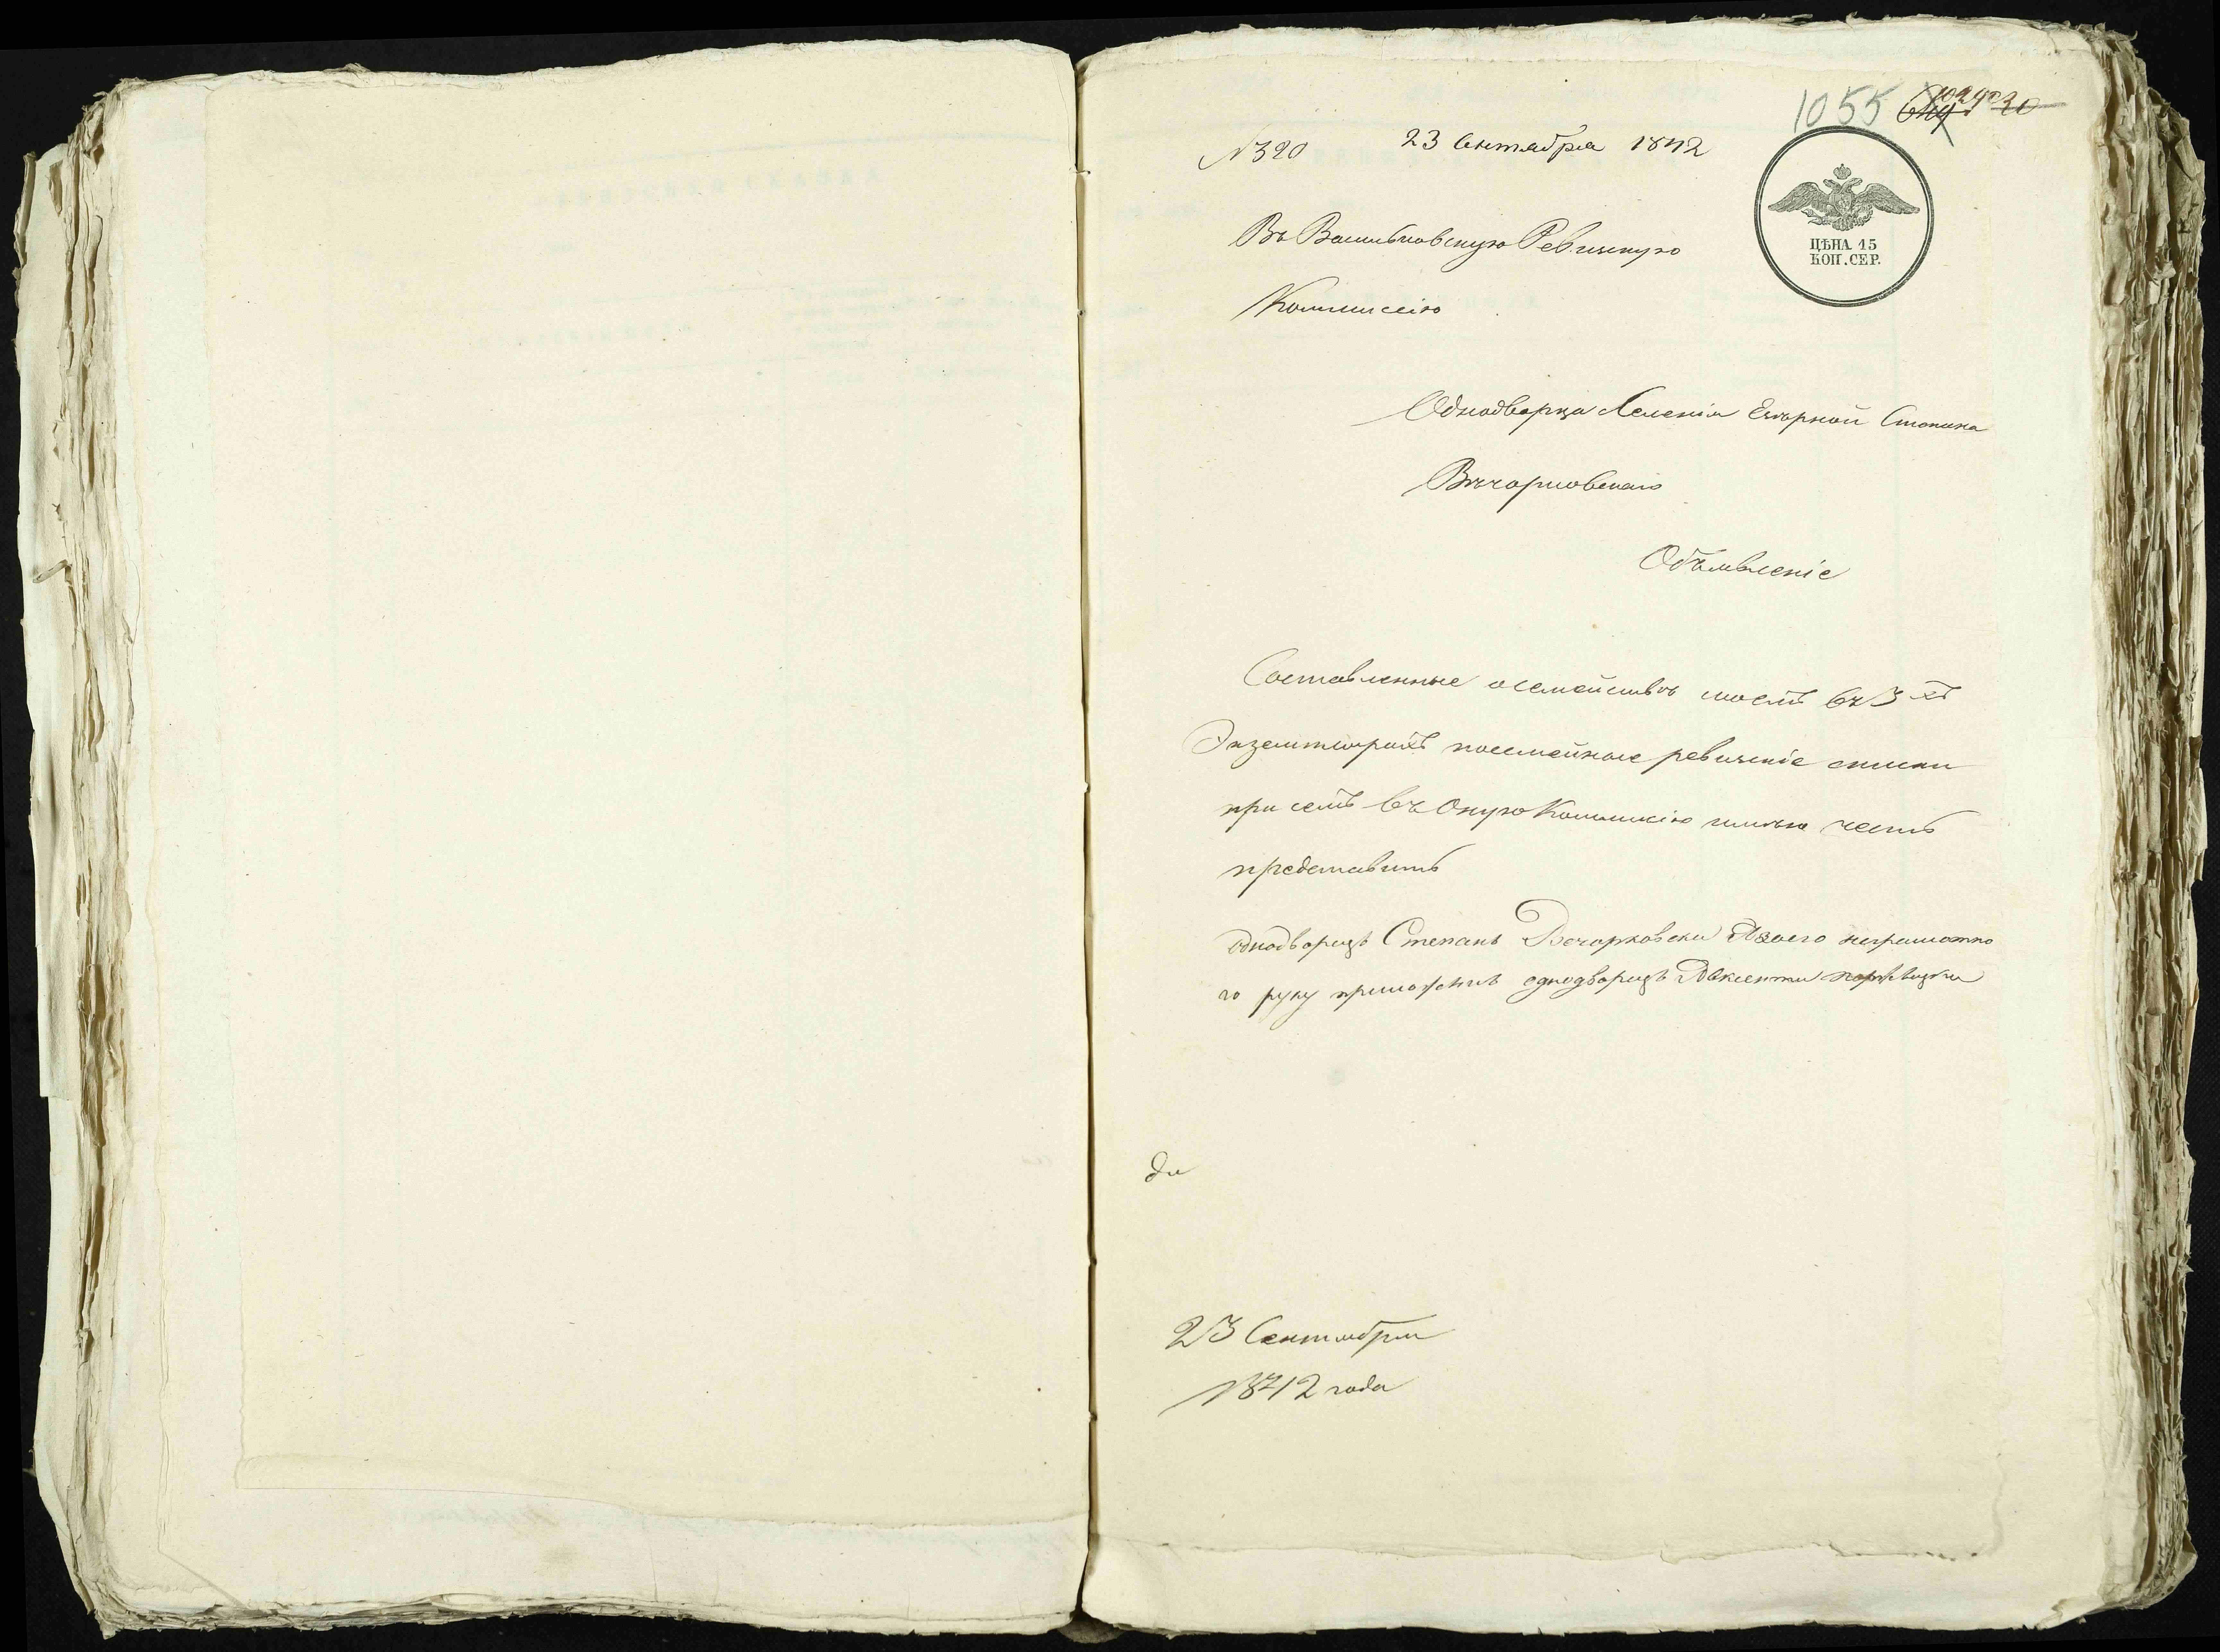 1055
№320 23 Сентября 1842
ЦѢНА 15
КОП. СЕР.
Въ Васильковскую Ревизкую
Коммисcію
Однодворца Селенія Степана
Вечорковскаго
Объявленіе
Составленные о семействѣ моемъ въ 3хъ
Экземплярахъ посемейные ревизскіе списки
при семъ въ Оную Коммисію имѣю честь
представить
однодворецъ Степанъ Вечорковски Азаего неграмотно
го руку приложилъ однодворецъ
23 Сентября
1842 года